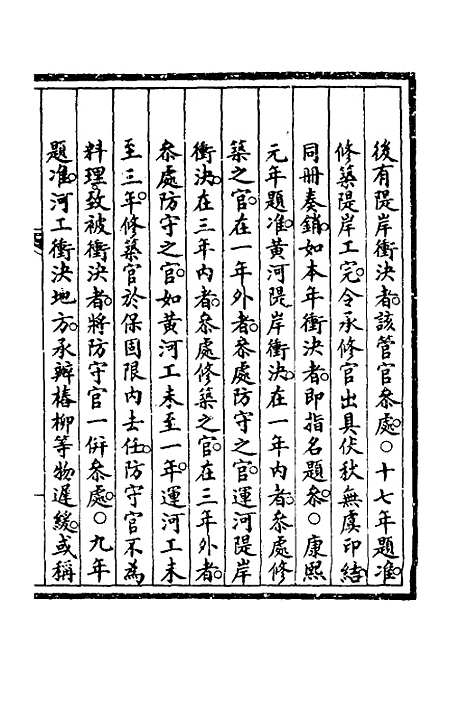 後有隄岸衝決者。該管官叅處。○十七年題准。
修築隄岸工完。令承修官出具伏秋無虞印結。
同册奏銷。如本年衝決者。即指名題叅。○康熙
元年題准。黃河隄岸衝決。在一年內者。叅處修
築之官。在一年外者。叅處防守之官。運河隄岸
衝決。在三年內者。叅處修築之官。在三年外者。
叅處防守之官。如黃河工未至一年。運河工未
至三年。修築官於保固限內去任。防守官不為
料理。致被衝決者。將防守官一併叅處。○九年
題准。河工衝決地方。承辦樁柳等物遲緩。或稱